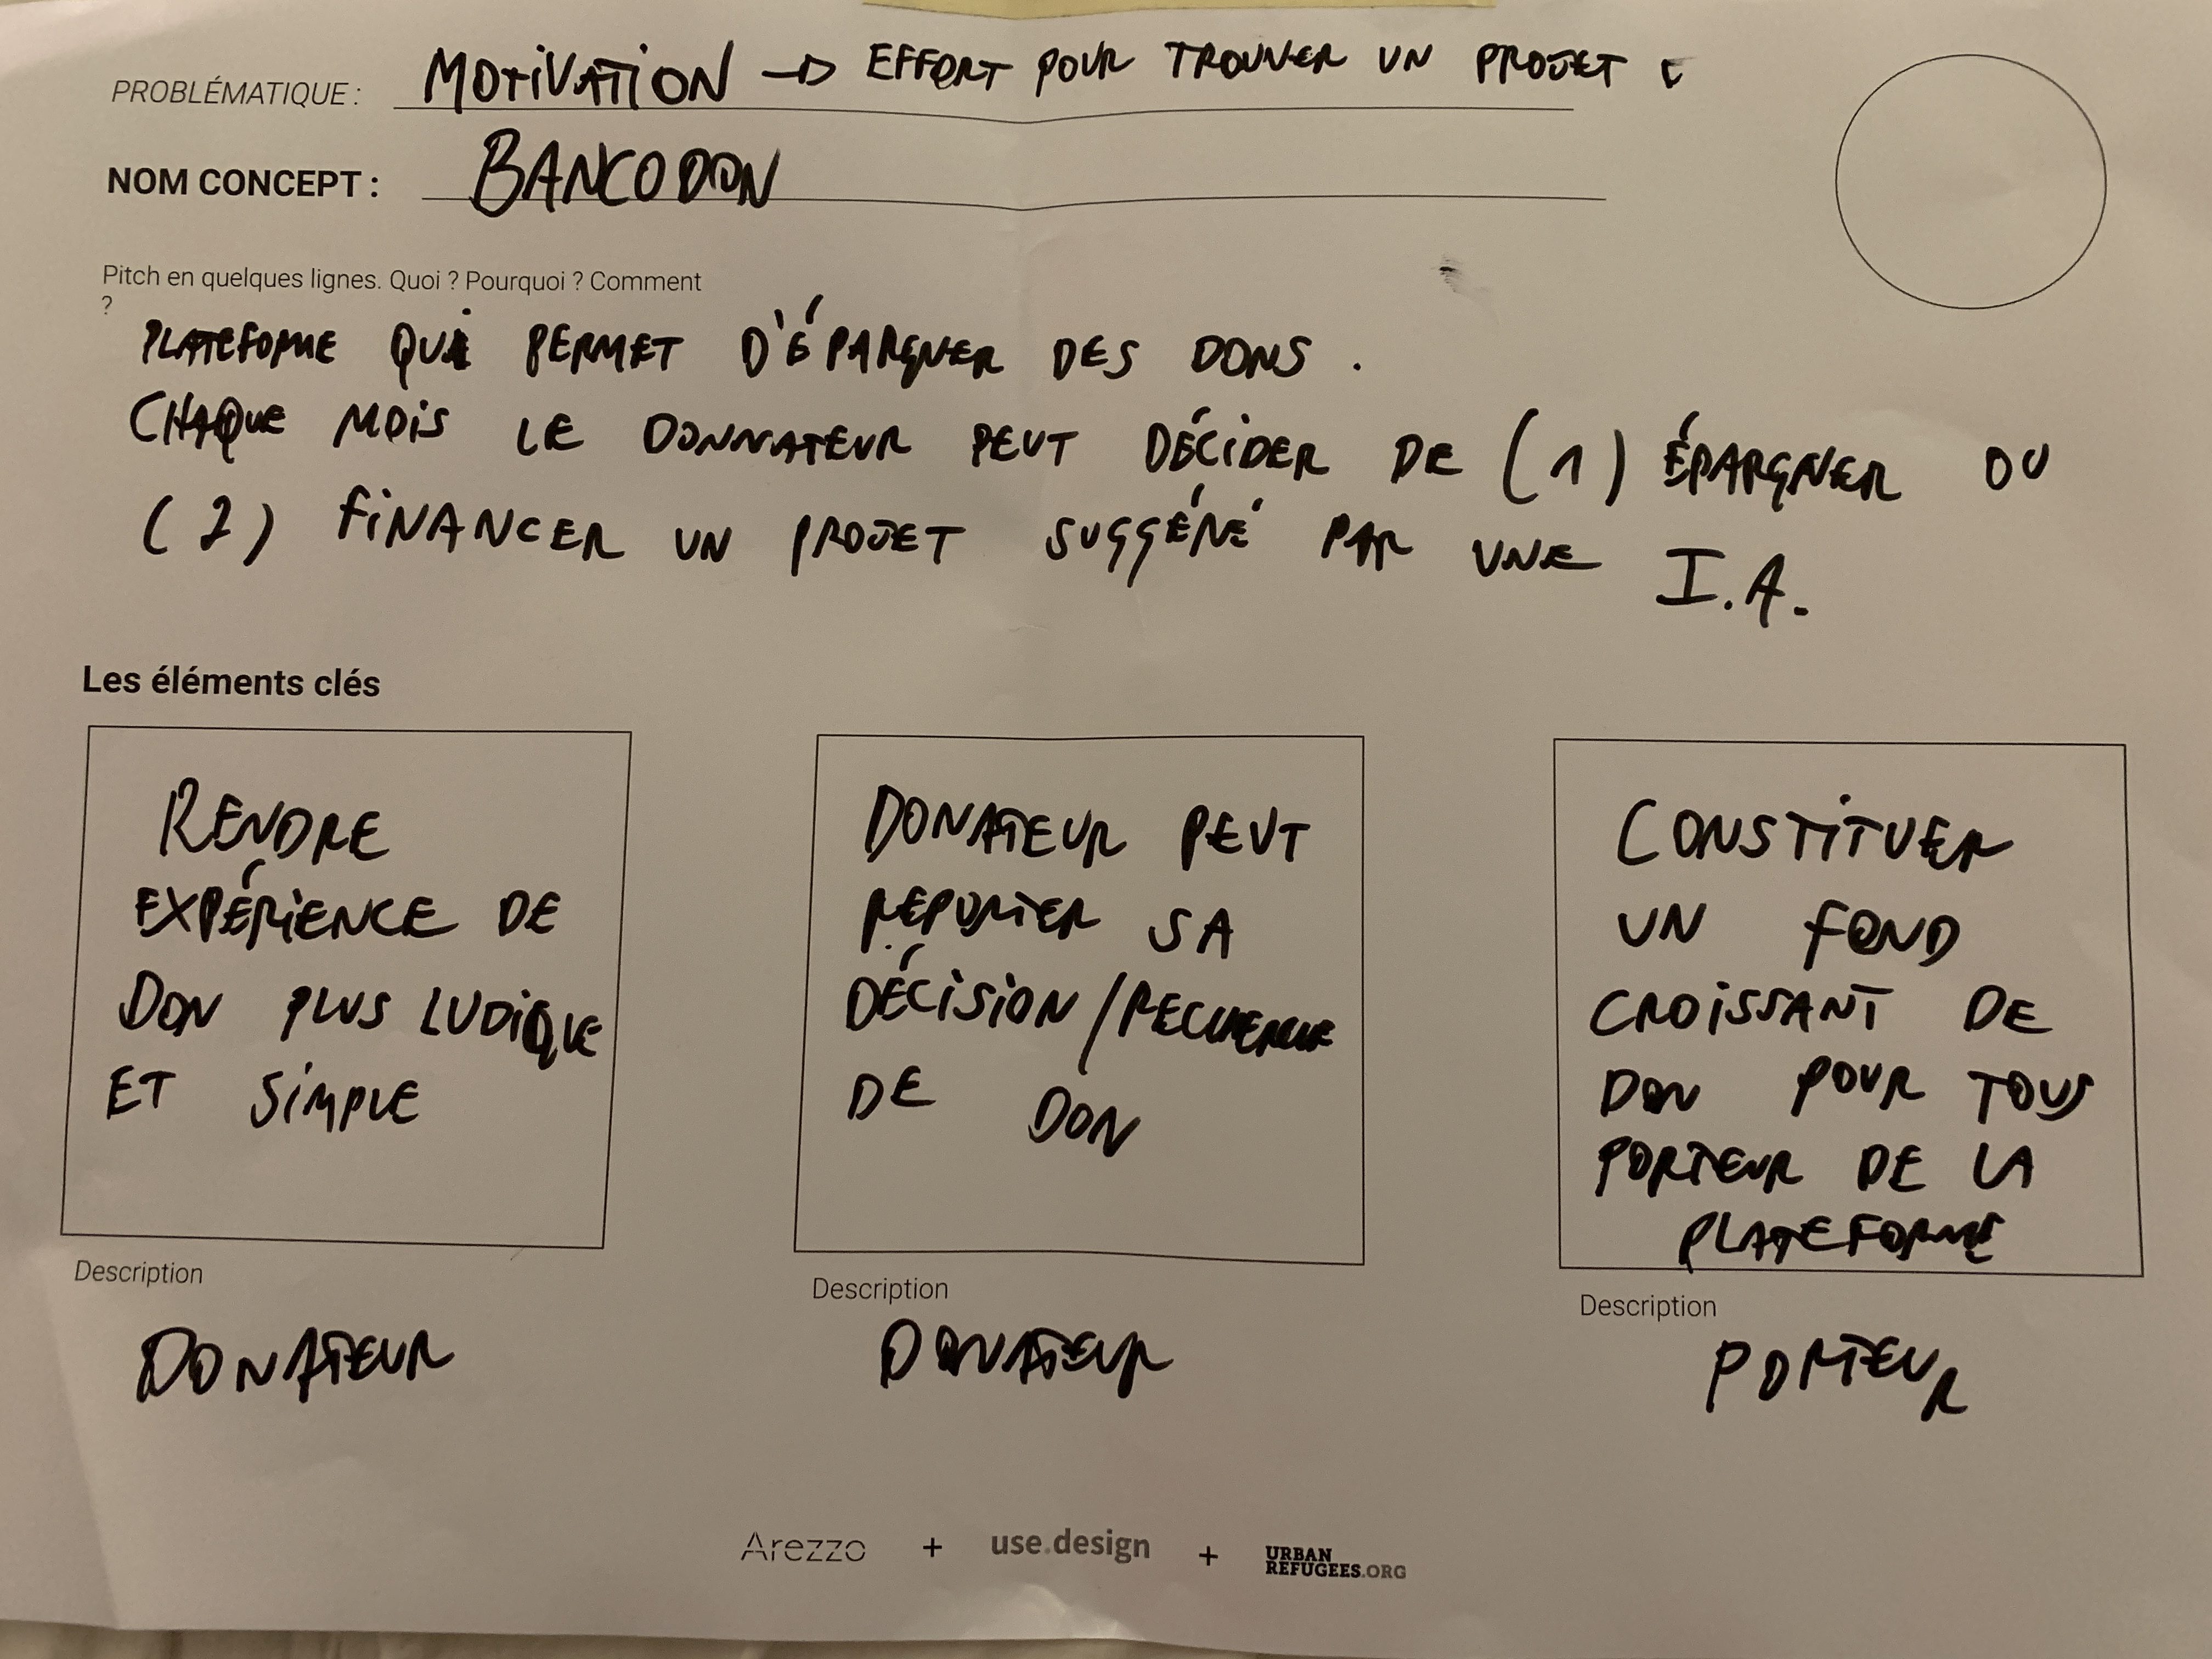 PROBLÉMATIQUE : MOTIVATION → EFFORT POUR TROUVER UN PROJET
NOM CONCEPT : BANCODON
Pitch en quelques lignes. Quoi ? Pourquoi ? Comment
?
PLATEFORME QUI PERMET D'ÉPARGNER DES DONS.
CHAQUE MOIS LE DONNATEUR PEUT DÉCIDER DE (1) ÉPARGNER OU
(2) FINANCER UN PROJET SUGGÉRÉ PAR UNE I.A.
Les éléments clés
RENDRE
EXPÉRIENCE DE
DON PLUS LUDIQUE
ET SIMPLE
Description
DONATEUR
DONATEUR PEUT
REPORTER SA
DÉCISION/RECHERCHE
DE DON
Description
DONATEUR
CONSTITUER
UN FOND
CROISSANT DE
DON POUR TOUS
PORTEUR DE LA
PLATEFORME
Description
PORTEUR
Arezzo + use.design + URBAN
REFUGEES.ORG